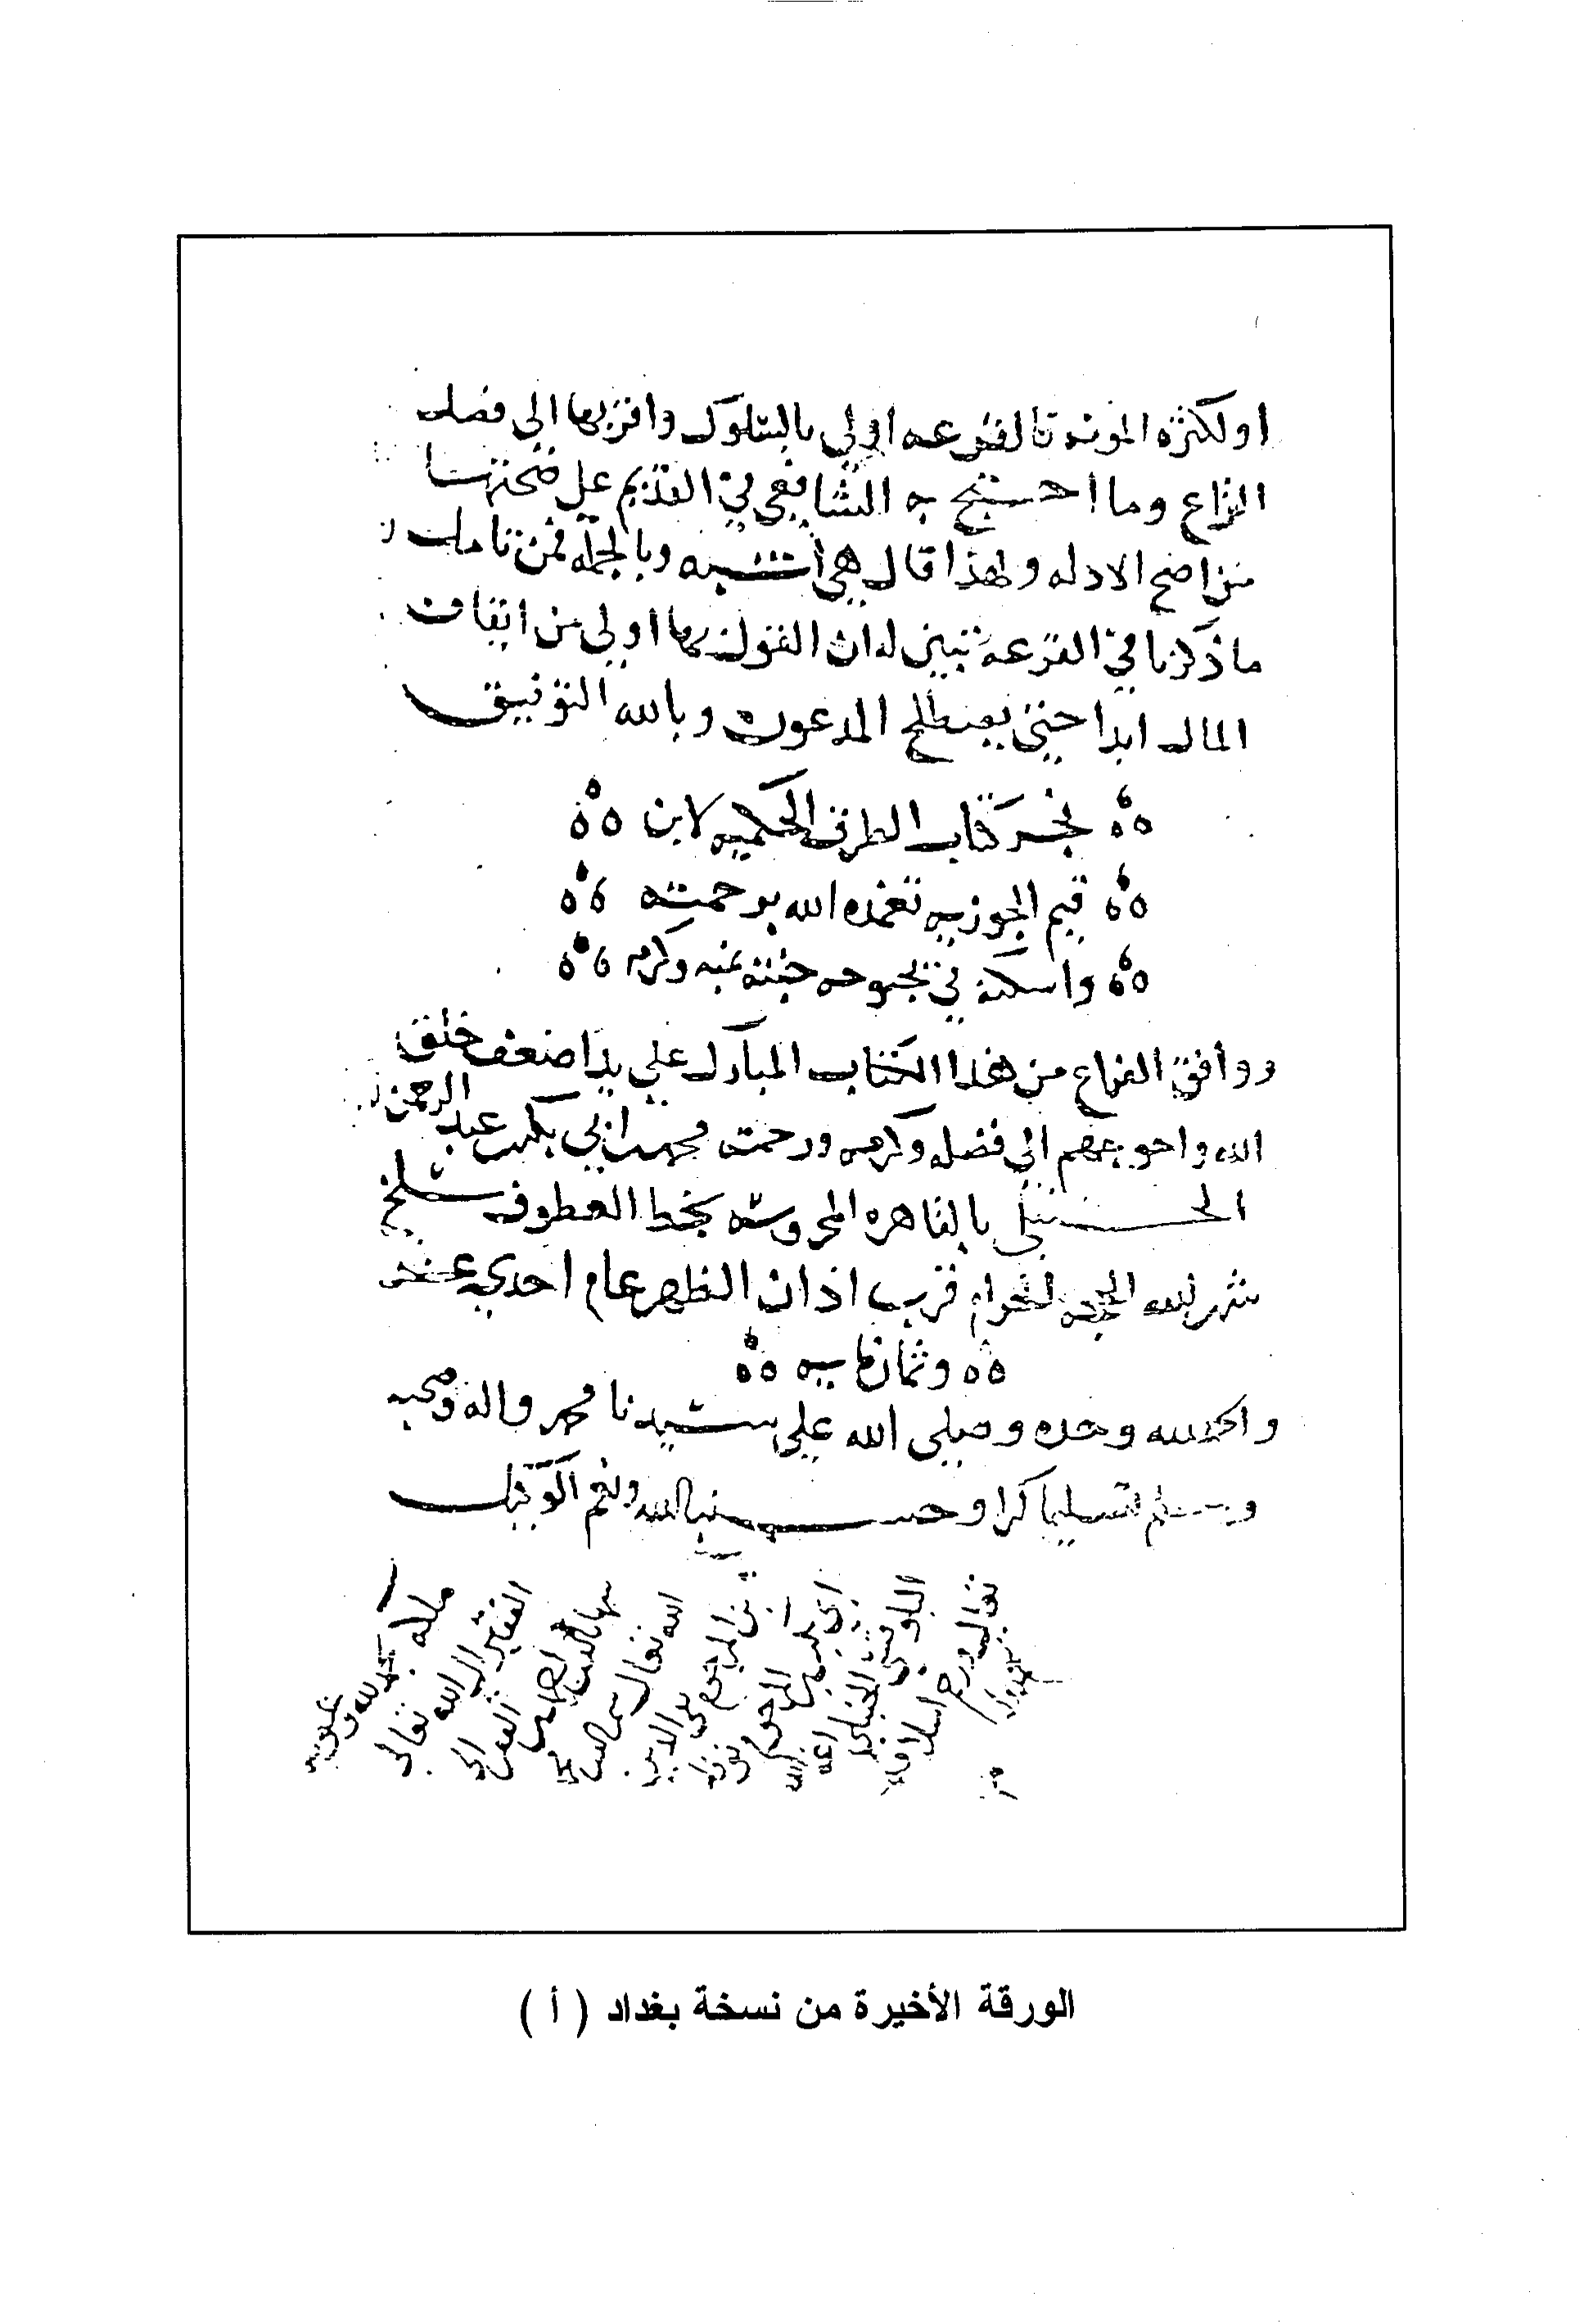 او لكثره المونه فالقرعه اولي بالسلوك واقربها الي فصل
النزاع وما احتج به الشافعي في القديم علي صحتها
من اصح الادله ولهذا قال هي اشبه وبالجمله فمن تامل
ما ذكرنا في القرعة تبين له ان القول بها اولي من ايقاف
المال ابدا حتي يصطلح المدعون وبالله التوفيق
نجز كتاب الطرق الحكميه لابن
قيم الجوزيه تغمده الله برحمته
واسكنه في بحبوحه جنته بمنه وكرمه
ووافق الفراغ من هذا الكتاب المبارك علي يد اضعف خلق
الله واحوجهم الي فضله وكرمه ورحمته محمد ابي بكر عبد الرحمن
الحنبلي بالقاهره المحروسه بخط العطوف سلخ
شهر الله الحجه الحرام قرب اذان الظهر عام احدي عشر
وثمان مايه
والحمد لله وحده وصلى الله علي سيدنا محمد واله وصحبه
وسلم تسليما كثيرا وحسبنا الله ونعم الوكيل
ملكه بحمد الله وعونه
الفقير الي الله تعالى
الله تعالى
ابن المرحوم
المرحوم
الورقة الأخيرة من نسخة بغداد ( أ )